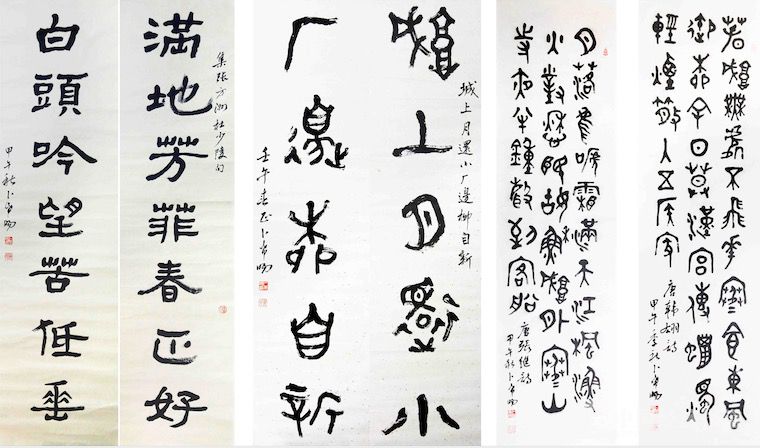 春城無處不飛花寒食東風
御柳斜日暮漢宮傳蠟燭
輕煙散入五侯家
唐韓翃詩
甲午季秋卜
月落烏啼霜滿天江楓漁
火對愁眠姑蘇城外寒山
寺夜半鐘聲到客船
唐張繼詩
甲午秋卜
城上月還小厂邊柳自新
城上月還小
厂邊柳自新
壬午春正卜
集張方洲杜少陵句
滿地芳菲春正好
白頭吟望苦低垂
甲午秋卜